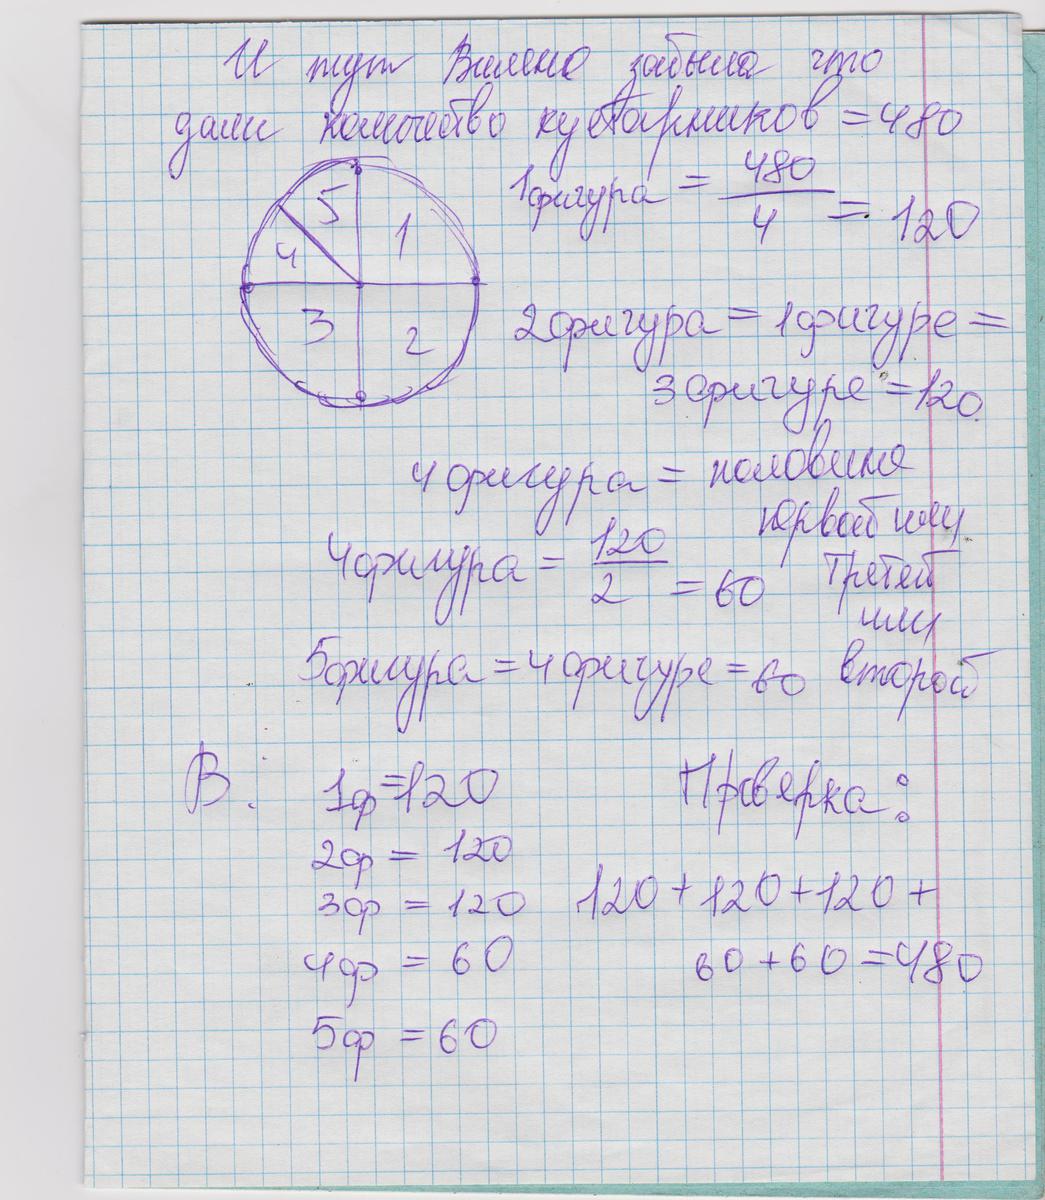 И тут Вилена забыла что
дали количество кустарников = 480
5
1
4
3
2
1 фигура = 480/4 = 120
2 фигура = 1 фигуре =
3 фигуре = 120
4 фигура = половина
первой или
третей
или
второй
4 фигура = 120/2 = 60
5 фигура = 4 фигуре = 60
В:
1ф = 120
2ф = 120
3ф = 120
4ф = 60
5ф = 60
Проверка:
120 + 120 + 120 +
60 + 60 = 480